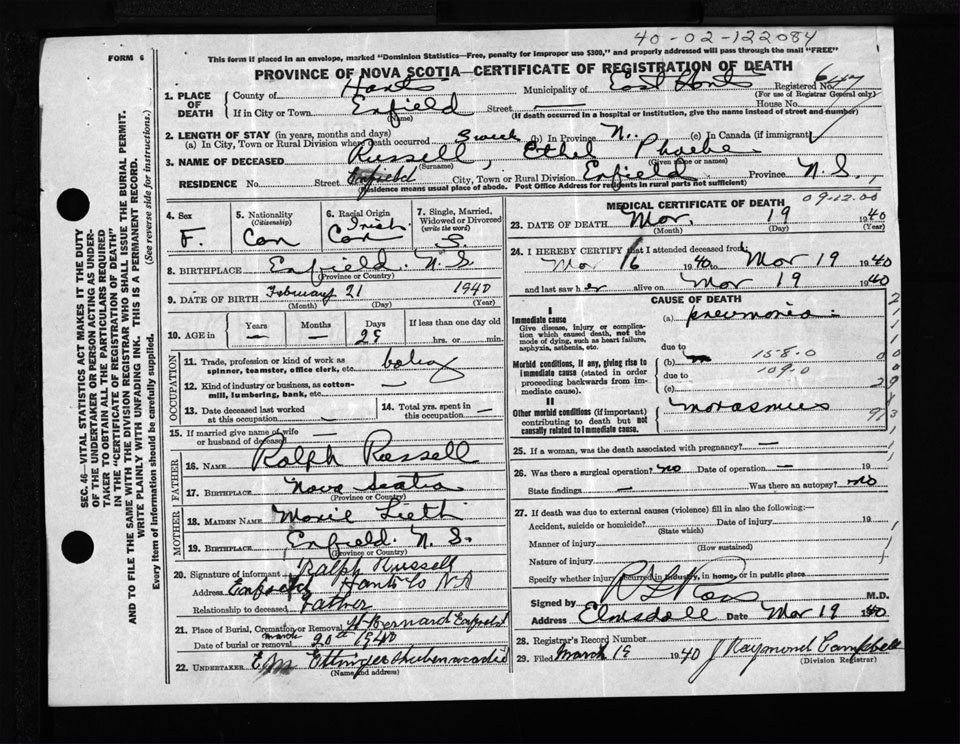 40-02-122084
FORM 6
This form if placed in an envelope, marked "Dominion Statistics—Free, penalty for improper use $300," and properly addressed will pass through the mail "FREE"
PROVINCE OF NOVA SCOTIA—CERTIFICATE OF REGISTRATION OF DEATH
1. PLACE OF DEATH
County of Hants Municipality of East Hants Registered No.
(For use of Registrar General only)
If in City or Town Enfield Street — House No.
(Name) (If death occurred in a hospital or institution, give the name instead of street and number)
2. LENGTH OF STAY (in years, months and days)
(a) In City, Town or Rural Division where death occurred 3 week (b) In Province N. (c) In Canada (if immigrant)
3. NAME OF DECEASED Russell, Ethel Phoebe
(Surname) (Given name or names)
RESIDENCE No. Street Enfield City, Town or Rural Division Enfield Province N.S.
(Residence means usual place of abode. Post Office Address for residents in rural parts not sufficient)
4. Sex
F.
5. Nationality
(Citizenship)
Can
6. Racial Origin
Irish
Can
7. Single, Married, Widowed or Divorced
(write the word)
S.
8. BIRTHPLACE Enfield. N.S.
(Province or Country)
9. DATE OF BIRTH February 21 1940
(Month) (Day) (Year)
10. AGE in Years Months Days If less than one day old
— — 29 hrs. or min.
OCCUPATION
11. Trade, profession or kind of work as spinner, teamster, office clerk, etc.
12. Kind of industry or business, as cotton-mill, lumbering, bank, etc. —
13. Date deceased last worked at this occupation —
14. Total yrs. spent in this occupation —
15. If married give name of wife or husband of deceased —
FATHER
16. NAME Ralph Russell
17. BIRTHPLACE Nova Scotia
(Province or Country)
MOTHER
18. MAIDEN NAME
19. BIRTHPLACE Enfield. N.S.
(Province or Country)
20. Signature of informant Ralph Russell
Address Enfield Hants Co N.S
Relationship to deceased Father
21. Place of Burial, Cremation or Removal St Bernard Enfield
Date of burial or removal March 20th 1940
22. UNDERTAKER E M Ettinger Shubenacadie
(Name and address)
MEDICAL CERTIFICATE OF DEATH
09-12.00
23. DATE OF DEATH Mar. 19 1940
(Month) (Day) (Year)
24. I HEREBY CERTIFY that I attended deceased from:
Mar 16 1940 to Mar 19 1940
and last saw her alive on Mar 19 1940
CAUSE OF DEATH
I
Immediate cause
Give disease, injury or complication which caused death, not the mode of dying, such as heart failure, asphyxia, asthenia, etc.
(a) pneumonia
due to
Morbid conditions, if any, giving rise to immediate cause (stated in order proceeding backwards from immediate cause).
(b) 158.0
due to 109.0
(c)
II
Other morbid conditions (if important) contributing to death but not causally related to immediate cause.
25. If a woman, was the death associated with pregnancy? —
26. Was there a surgical operation? no Date of operation — 19
State findings — Was there an autopsy? no
27. If death was due to external causes (violence) fill in also the following:—
Accident, suicide or homicide? Date of injury 19
(State which)
Manner of injury
(How sustained)
Nature of injury
Specify whether injury occurred in industry, in home, or in public place
Signed by M.D.
Address Elmsdale Date Mar 19 1940
28. Registrar's Record Number
29. Filed March 19 1940 J Raymond Campbell
(Division Registrar)
SEC. 46—VITAL STATISTICS ACT MAKES IT THE DUTY
OF THE UNDERTAKER OR PERSON ACTING AS UNDERTAKER TO OBTAIN ALL THE PARTICULARS REQUIRED
IN THE "CERTIFICATE OF REGISTRATION OF DEATH"
AND TO FILE THE SAME WITH THE DIVISION REGISTRAR WHO SHALL ISSUE THE BURIAL PERMIT.
WRITE PLAINLY WITH UNFADING INK. THIS IS A PERMANENT RECORD.
Every item of information should be carefully supplied. (See reverse side for instructions.)